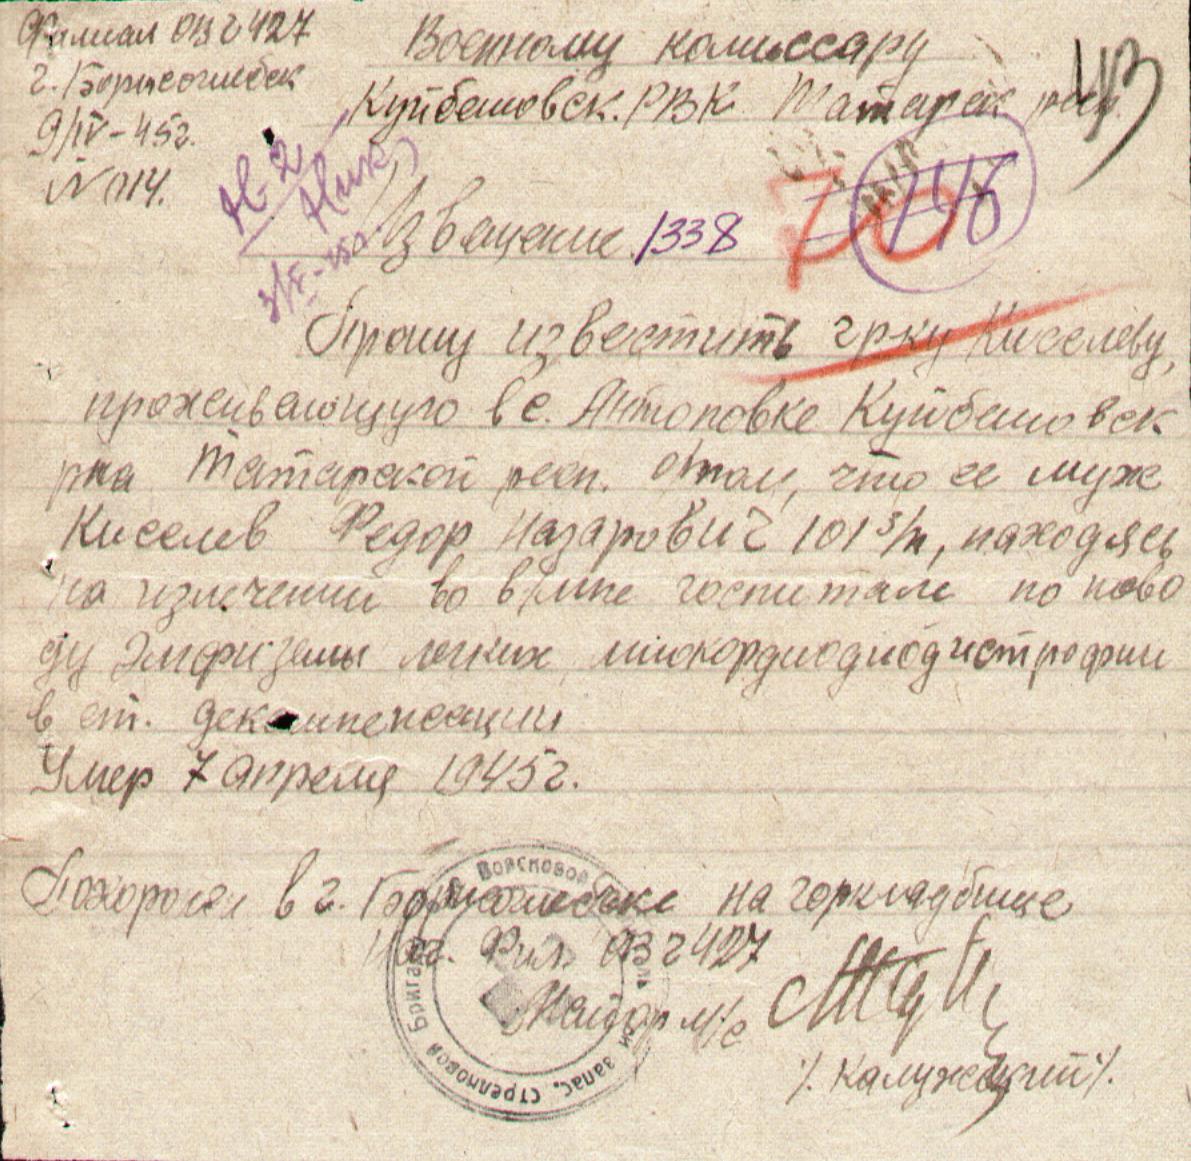 Филиал ОВГ 427
г. Борисоглебск
9/IV-45г.
N 014.
Военному комиссару
Куйбешовск. РВК Татарск респ.
43
70
146
Извещение 1338
Прошу известить гр-ку Киселеву,
проживающую в с. Антоновке Куйбешовск
р-на Татарской респ. о том, что ее муж
Киселев Федор Назарович 101 з/п, находясь
на излечении во в/мпе госпитале по пово
ду Эмфиземы легких, миокордиодиодистрофии
в ст. декомпенсации
Умер 7 апреля 1945г.
Похоронен в г. Борисоглебске на горкладбище
Нач. Фил. ОВГ 427
Майор м/с
/. Калужский /.
Войсковой
Бригады
запас. стрелковой